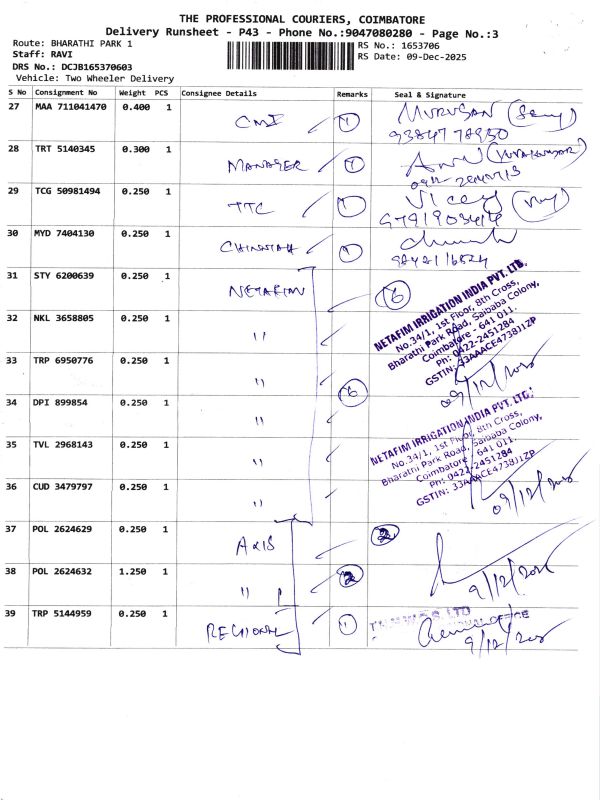 THE PROFESSIONAL COURIERS, COIMBATORE
Delivery Runsheet - P43 - Phone No.:9047080280 - Page No.:3
Route: BHARATHI PARK 1
Staff: RAVI
DRS No.: DCJB165370603
Vehicle: Two Wheeler Delivery
RS No.: 1653706
RS Date: 09-Dec-2025
S No Consignment No Weight PCS Consignee Details Remarks Seal & Signature
27 MAA 711041470 0.400 1 CMI 1 MURUGAN
9384778950
28 TRT 5140345 0.300 1 MANAGER 1
29 TCG 50981494 0.250 1 TTC 1
30 MYD 7404130 0.250 1 1
31 STY 6200639 0.250 1 6
NETAFIM IRRIGATION INDIA PVT. LTD.
No.34/1, 1st Floor, 8th Cross,
Bharathi Park Road, Saibaba Colony,
Coimbatore - 641 011.
Ph: 0422-2451284
GSTIN: 33AAACE4738J1ZP
32 NKL 3658805 0.250 1 "
33 TRP 6950776 0.250 1 " 6
34 DPI 899854 0.250 1 "
NETAFIM IRRIGATION INDIA PVT. LTD.
No.34/1, 1st Floor, 8th Cross,
Bharathi Park Road, Saibaba Colony,
Coimbatore - 641 011.
Ph: 0422-2451284
GSTIN: 33AAACE4738J1ZP
35 TVL 2968143 0.250 1 "
36 CUD 3479797 0.250 1 "
09/12/2025
37 POL 2624629 0.250 1 AXIS 2
38 POL 2624632 1.250 1 " 2
9/12/2025
39 TRP 5144959 0.250 1 REGIONAL 1
9/12/2025